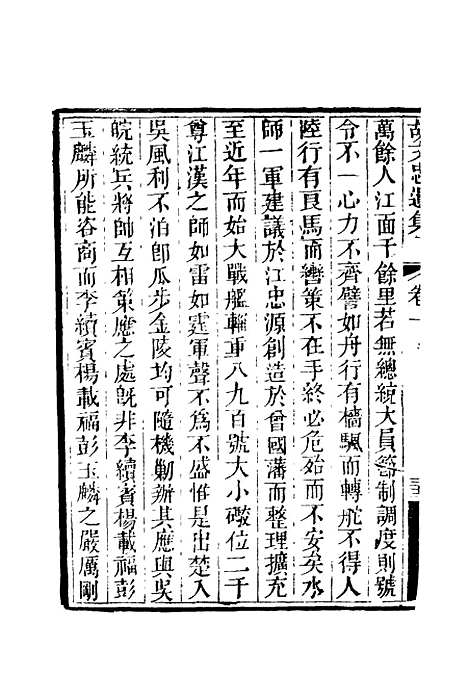 胡文忠遺集 卷一
萬餘人江面千餘里若無總統大員節制調度則號
令不一心力不齊譬如舟行有檣颿而轉舵不得人
陸行有良馬而轡策不在手終必危殆而不安矣水
師一軍建議於江忠源創造於曾國藩而整理擴充
至近年而始大戰艦輜重八九百號大小礮位二千
尊江漢之師如雷如霆軍聲不爲不盛惟是出楚入
吳風利不泊卽瓜步金陵均可隨機勦辦其應與吳
皖統兵將帥互相策應之處旣非李續賓楊載福彭
玉麟所能咨商而李續賓楊載福彭玉麟之嚴厲剛